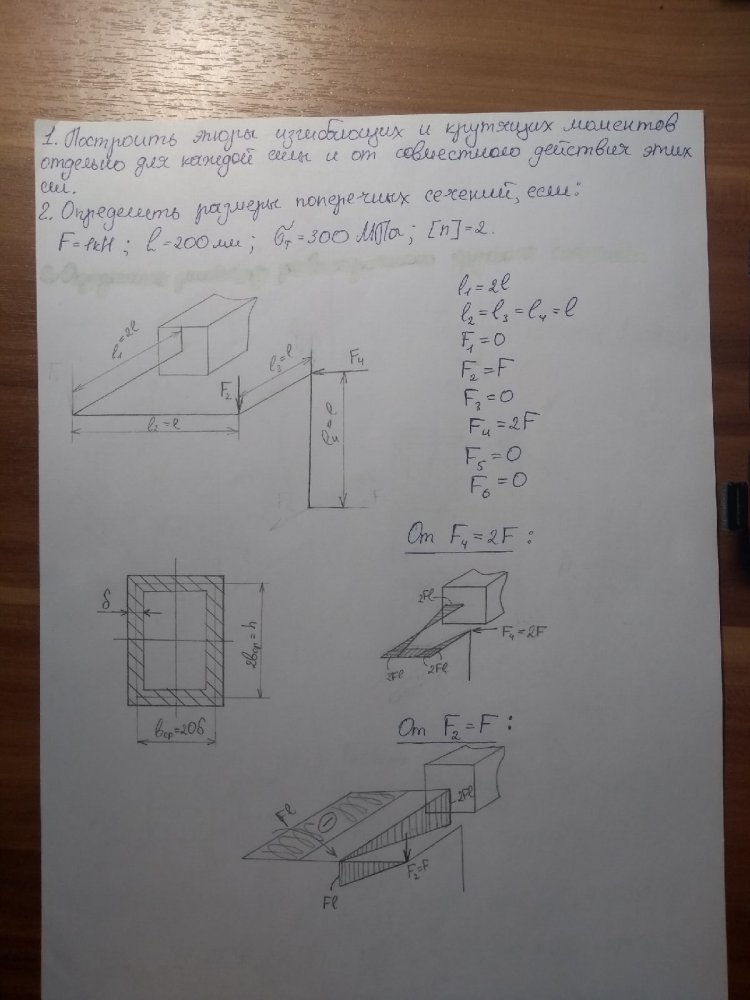 1. Построить эпюры изгибающих и крутящих моментов
отдельно для каждой силы и от совместного действия этих
сил.
2. Определить размеры поперечных сечений, если:
F=1кН; l=200мм; σт=300МПа; [n]=2.
l1=2l
l2=l3=l4=l
F1=0
F2=F
F3=0
F4=2F
F5=0
F6=0
l1=2l
l3=l
F4
F2
l2=l
l4=l
От F4=2F:
2Fl
F4=2F
2Fl
2Fl
δ
2bср=h
bср=20δ
От F2=F:
Fl
2Fl
F2=F
Fl